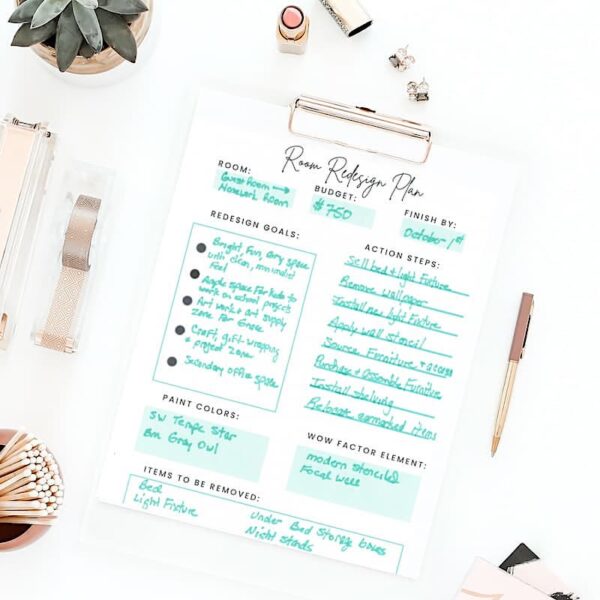 Room Redesign Plan
ROOM:
Guest Room →
Homework Room
BUDGET:
$750
FINISH BY:
October 1st
REDESIGN GOALS:
Bright, Fun, airy space
with clean, minimalist
feel
Ample space for kids to
work on school projects
Art work + art supply
zone for
Craft, gift-wrapping
+ project zone
Secondary office space
ACTION STEPS:
Sell bed + light fixture
Remove wallpaper
Install new light fixture
Apply wall stencil
Source Furniture + access
Purchase + Assemble Furniture
Install shelving
earmarked items
PAINT COLORS:
SW Tempe Star
BM Gray Owl
WOW FACTOR ELEMENT:
modern stenciled
Focal Wall
ITEMS TO BE REMOVED:
Bed
Light Fixture
Under Bed Storage boxes
Night stands